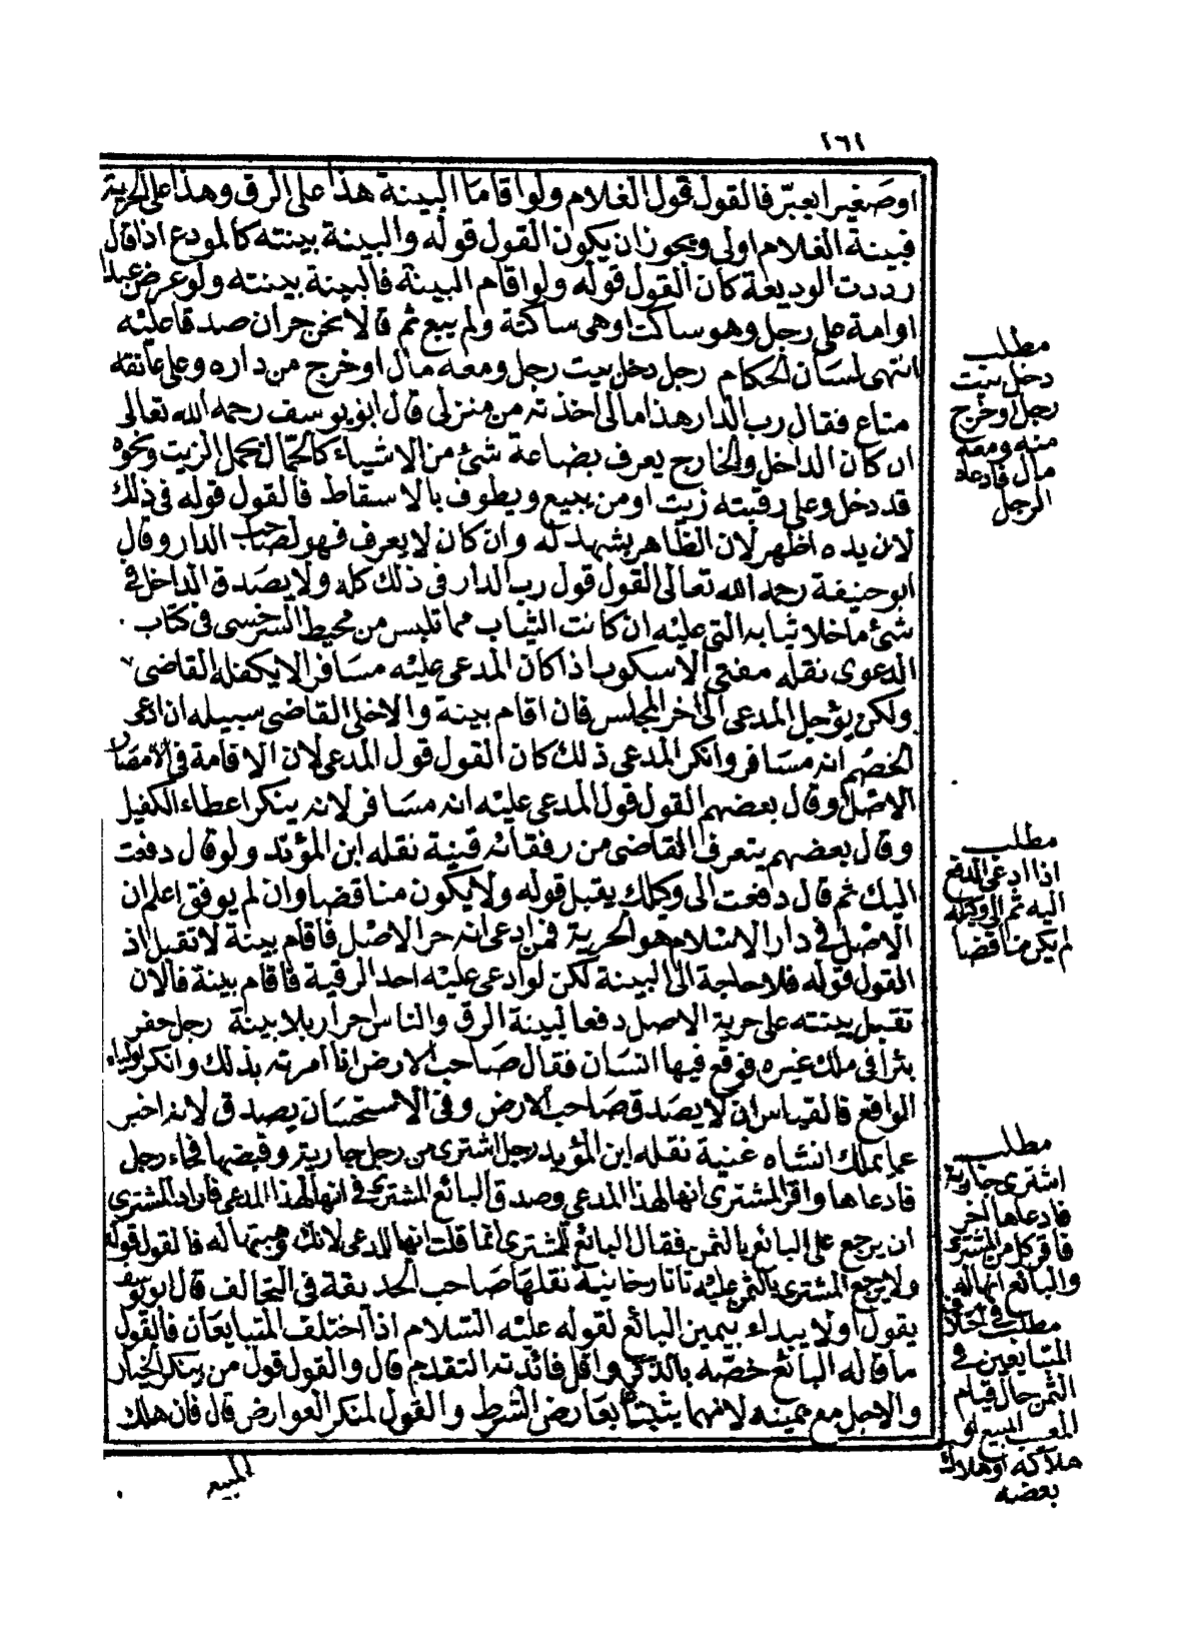 ١٦١
او صغيرا يعبر فالقول قول الغلام ولو اقاما البينة هذا على الرق وهذا على الحرية
فبينة الغلام اولى ويجوز ان يكون القول قوله والبينة بينته كالمودع اذا قال
رددت الوديعة كان القول قوله ولو اقام البينة فالبينة بينته ولو عرض عبدا
او امة على رجل وهو ساكت او هى ساكتة ولم يبع ثم قالا نحن حران صدقا عليه
انتهى لسان الحكام رجل دخل بيت رجل ومعه مال او خرج من داره وعلى عاتقه
متاع فقال رب الدار هذا مالى اخذته من منزلى قال ابو يوسف رحمه الله تعالى
ان كان الداخل والخارج يعرف بضاعة شئ من الاشياء كالحمال يحمل الزيت ونحوه
قد دخل وعلى رقبته زيت او من يبيع ويطوف بالاسقاط فالقول قوله فى ذلك
لان يده اظهر لان الظاهر يشهد له وان كان لا يعرف فهو لصاحب الدار وقال
ابو حنيفة رحمه الله تعالى القول قول رب الدار فى ذلك كله ولا يصدق الداخل فى
شئ ما خلا ثيابه التى عليه ان كانت الثياب مما تلبس من محيط السرخسى فى كتاب
الدعوى نقله مفتى الاسكوب اذا كان المدعى عليه مسافرا لا يكفله القاضى
ولكن يؤجل المدعى الى اخر المجلس فان اقام بينة والا خلى القاضى سبيله ان ادعى
الخصم انه مسافر وانكر المدعى ذلك كان القول قول المدعى لان الاقامة فى الامصار
الاصل وقال بعضهم القول قول المدعى عليه انه مسافر لانه ينكر اعطاء الكفيل
وقال بعضهم يتعرف القاضى من رفقائه قنية نقله ابن المؤيد ولو قال دفعت
اليك ثم قال دفعت الى وكيلك يقبل قوله ولا يكون مناقضا وان لم يوفق اعلم ان
الاصل فى دار الاسلام هو الحرية فمن ادعى انه حر الاصل فاقام بينة لا تقبل اذ
القول قوله فلا حاجة الى البينة لكن لو ادعى عليه احد الرقية فاقام بينة فالان
تقبل بينته على حرية الاصل دفعا لبينة الرق والناس احرار بلا بينة رجل حفر
بئرا فى ملك غيره فوقع فيها انسان فقال صاحب الارض انا امرته بذلك وانكر اولياء
الواقع فالقياس ان لا يصدق صاحب الارض وفى الاستحسان يصدق لانه اخبر
عما يملك انشاه غنية نقله ابن المؤيد رجل اشترى من رجل جارية وقبضها فجاء رجل
فادعاها واقر المشترى انها لهذا المدعى وصدق البائع المشترى فى انها لهذا المدعى فاراد المشترى
ان يرجع على البائع بالثمن فقال البائع للمشترى انما قلت انها للمدعى لانك وهبتها له فالقول قوله
ولا يرجع المشترى بالثمن عليه تاتارخانية نقلها صاحب الحديقة فى التحالف قال ابو يوسف
يقول اولا يبداء بيمين البائع لقوله عليه السلام اذا اختلف المتبايعان فالقول
ما قاله البائع خصه بالذكر واقل فائدته التقدم قال والقول قول من ينكر الخيار
والاجل مع يمينه لانهما يثبتان بعارض الشرط والقول لمنكر العوارض قال فان هلك
المبيع
مطلب
دخل بيت
رجل او خرج
منه ومعه
مال فادعاه
الرجل
مطلب
اذا ادعى الدفع
اليه ثم الى وكيله
لم يكن مناقضا
مطلب
اشترى جارية
فادعاها اخر
فاقر كل من المشترى
والبائع انها له
مطلب فى اختلاف
المتبايعين فى
الثمن حال قيام
المبيع او
هلاكه او هلاك
بعضه